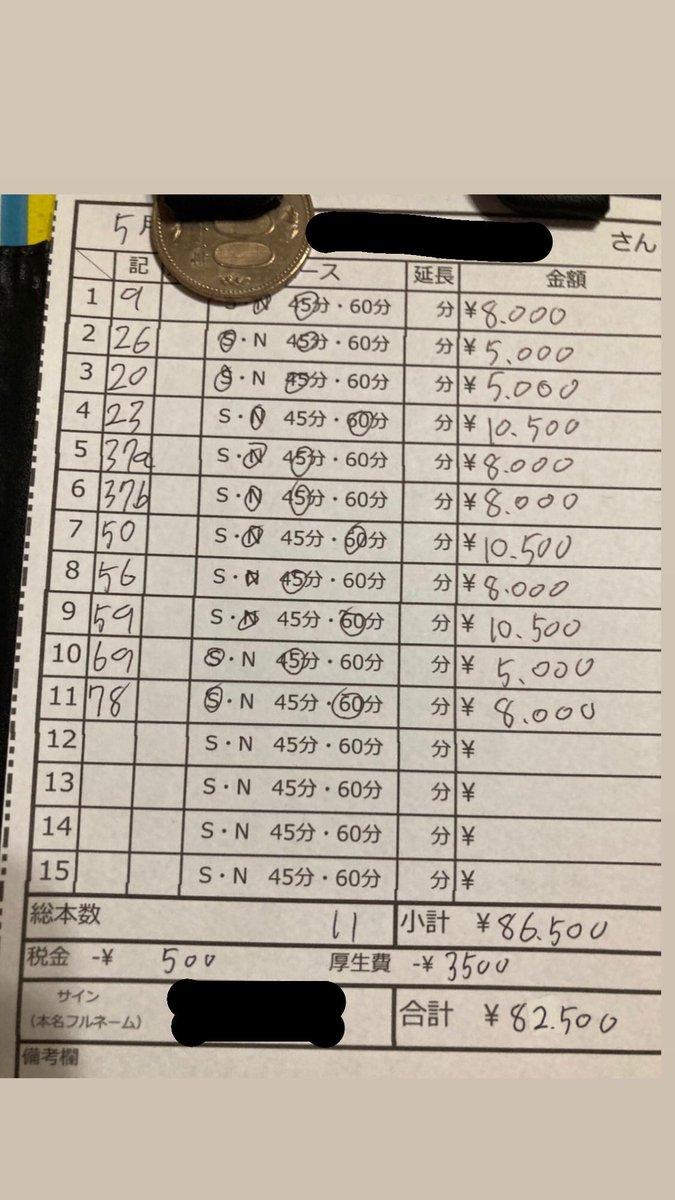 5月 さん
記 ース 延長 金額
1 9 S・N 45分・60分 分 ¥8.000
2 26 S・N 45分・60分 分 ¥5.000
3 20 S・N 45分・60分 分 ¥5.000
4 23 S・N 45分・60分 分 ¥10.500
5 37a S・N 45分・60分 分 ¥8.000
6 37b S・N 45分・60分 分 ¥8.000
7 50 S・N 45分・60分 分 ¥10.500
8 56 S・N 45分・60分 分 ¥8.000
9 59 S・N 45分・60分 分 ¥10.500
10 69 S・N 45分・60分 分 ¥5.000
11 78 S・N 45分・60分 分 ¥8.000
12 S・N 45分・60分 分 ¥
13 S・N 45分・60分 分 ¥
14 S・N 45分・60分 分 ¥
15 S・N 45分・60分 分 ¥
総本数 11 小計 ¥86.500
税金 -¥ 500 厚生費 -¥3500
サイン
(本名フルネーム) 合計 ¥82.500
備考欄